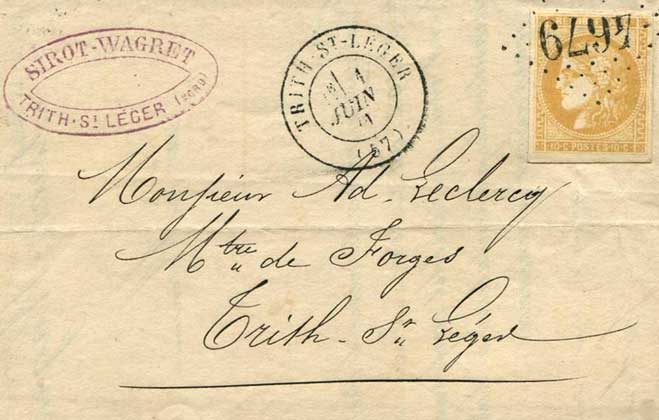 SIROT-WAGRET
TRITH-St LÉGER (NORD)
TRITH-ST-LÉGER
4
JUIN
71
(57)
4679
10·C POSTES 10·C
Monsieur Ad. Leclercq
Mtre de Forges
Trith-St Léger